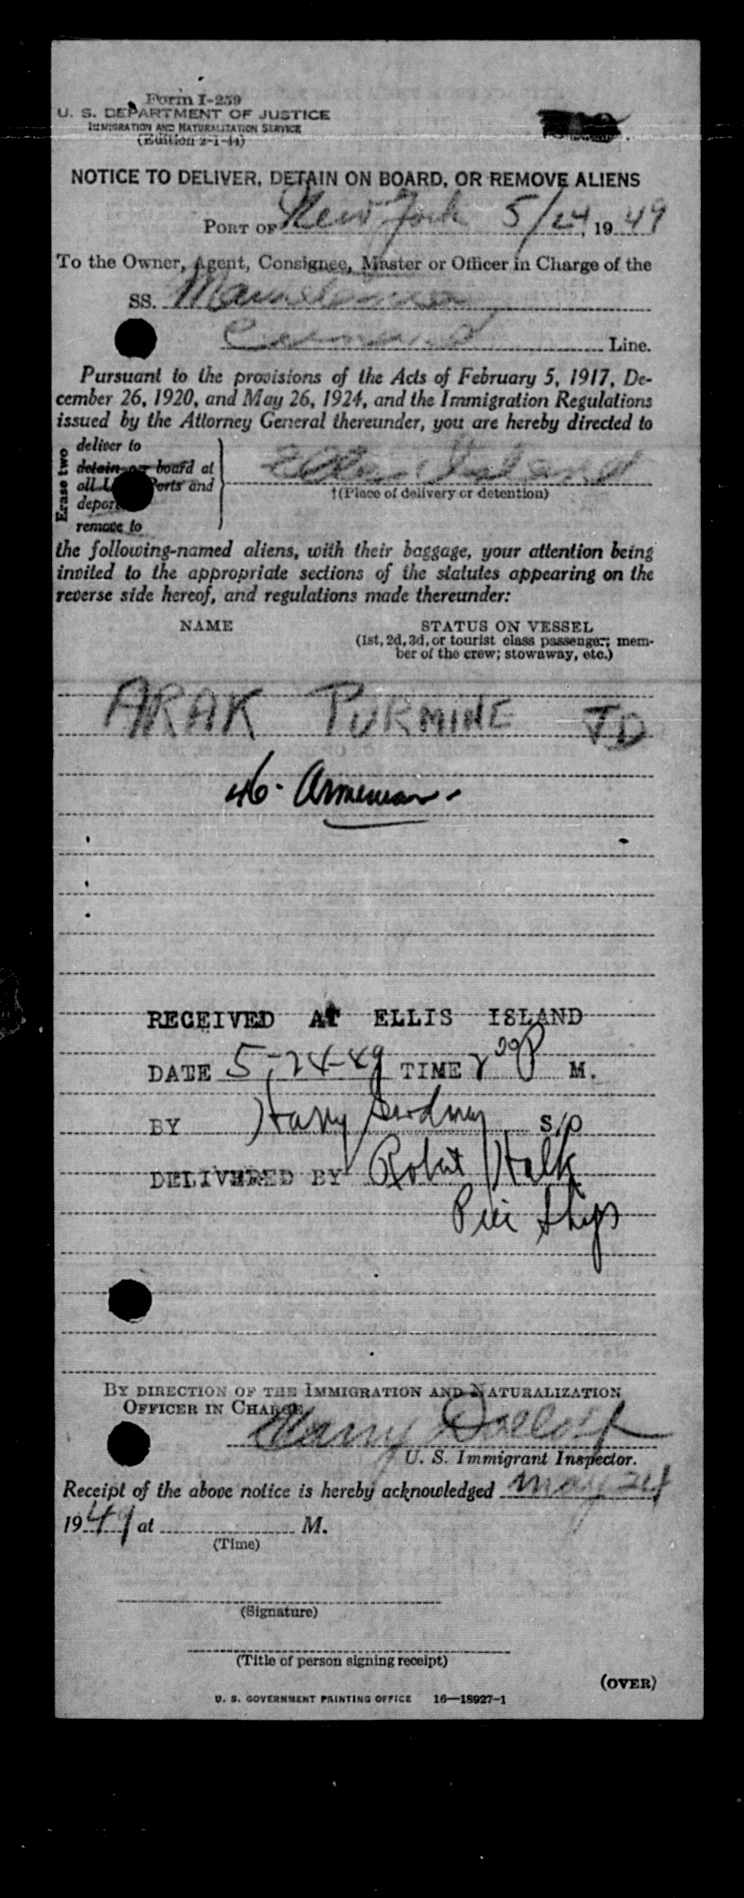 Form I-259
U. S. DEPARTMENT OF JUSTICE
IMMIGRATION AND NATURALIZATION SERVICE
(Edition 2-1-44)
NOTICE TO DELIVER, DETAIN ON BOARD, OR REMOVE ALIENS
PORT OF New York 5/24, 1949
To the Owner, Agent, Consignee, Master or Officer in Charge of the
SS. Mauretania
Cunard Line.
Pursuant to the provisions of the Acts of February 5, 1917, De-
cember 26, 1920, and May 26, 1924, and the Immigration Regulations
issued by the Attorney General thereunder, you are hereby directed to
Erase two
deliver to
detain on board at
all U. Ports and
deport
remove to
Ellis Island
†(Place of delivery or detention)
the following-named aliens, with their baggage, your attention being
invited to the appropriate sections of the statutes appearing on the
reverse side hereof, and regulations made thereunder:
NAME STATUS ON VESSEL
(1st, 2d, 3d, or tourist class passenger; mem-
ber of the crew; stowaway, etc.)
ARAK PURMINE TD
46. Armenian.
RECEIVED AT ELLIS ISLAND
DATE 5-24-49 TIME 2 00 P M.
BY Harry S/O
DELIVERED BY Robert Halk
Pier Ships
BY DIRECTION OF THE IMMIGRATION AND NATURALIZATION
OFFICER IN CHARGE
Harry
U. S. Immigrant Inspector.
Receipt of the above notice is hereby acknowledged May 24
1949 at M.
(Time)
(Signature)
(Title of person signing receipt)
(OVER)
U. S. GOVERNMENT PRINTING OFFICE 16—18927-1